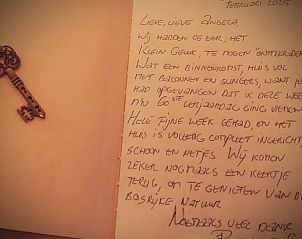 Februari 2025
Lieve, lieve Angela,
Wij hadden de eer, het
Klein Geluk, te mogen "ontmaagden"
Wat een binnenkomst, huis vol
met ballonnen en slingers, want je
had opgevangen dat ik deze week
m'n 60ste verjaardag ging vieren
Hele fijne week gehad, en het
huis is volledig compleet ingericht,
schoon en netjes. Wij komen
zeker nogmaals een keertje
terug, om te genieten van de
bosrijke natuur
Nogmaals veel dank